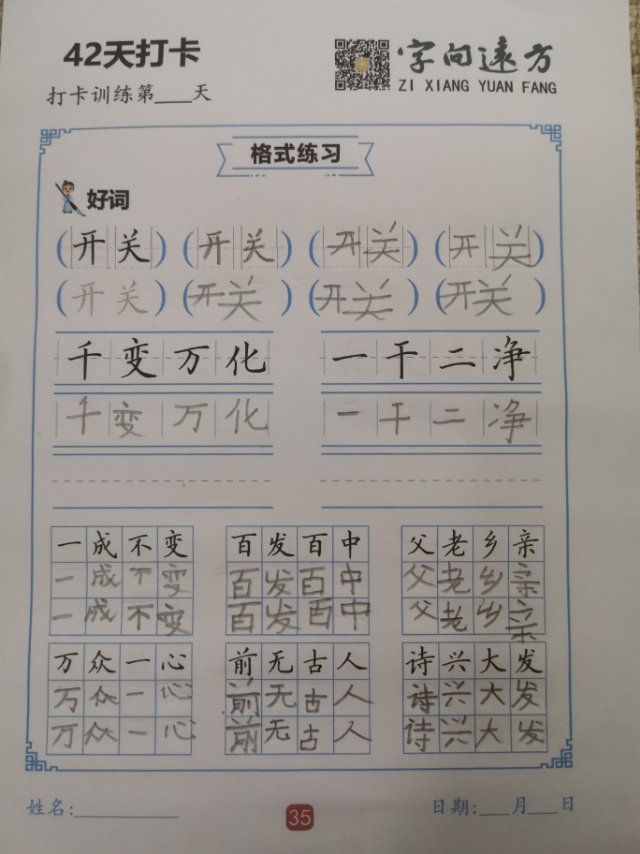 42天打卡
字向远方
ZI XIANG YUAN FANG
打卡训练第___天
格式练习
好词
(开关) (开关) (开关) (开关)
(开关) (开关) (开关) (开关)
千变万化 一干二净
千变万化 一干二净
一成不变 百发百中 父老乡亲
一成不变 百发百中 父老乡亲
一成不变 百发百中 父老乡亲
万众一心 前无古人 诗兴大发
万众一心 前无古人 诗兴大发
万众一心 前无古人 诗兴大发
姓名:___ 35 日期:___月___日